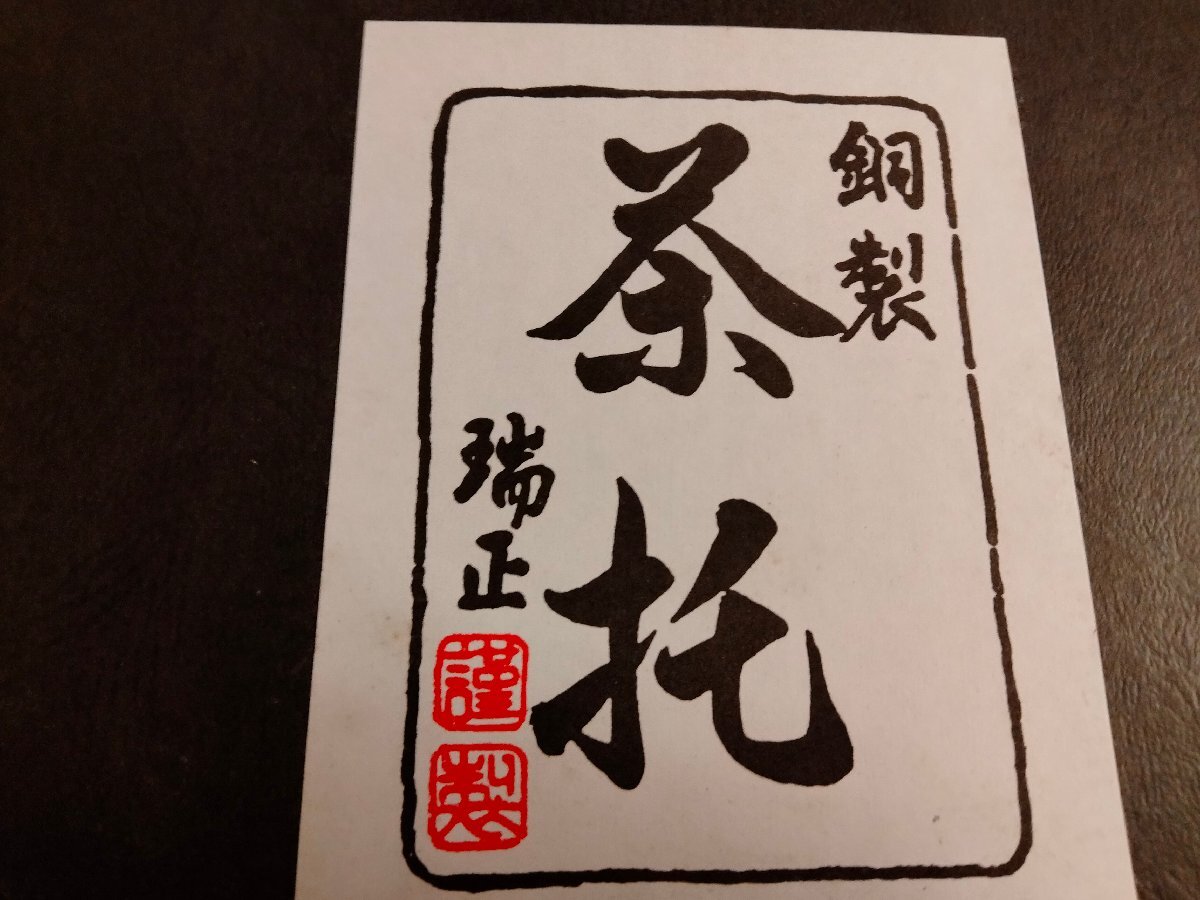 銅製
茶托
瑞正
謹製